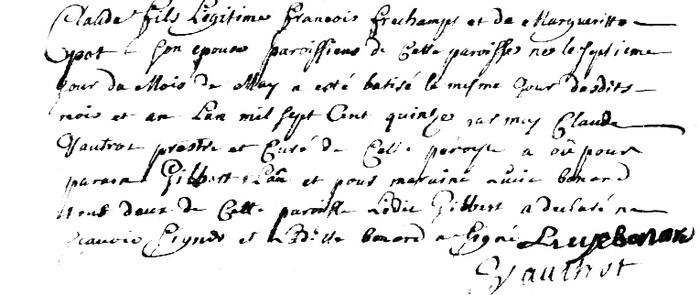 Claude fils Legitime francois frechamps et de Margueritte
Epot son epouse paroissiens de Cette paroisse nes le septieme
jour du Mois de May a esté batisé le mesme jour desdits
mois et an Lan mil sept Cent quinze par moy Claude
Vautrot prestre et Curé de Cette peroisse a où pour
parain Gilbert et pour maraine Lucie bonard
tous deux de Cette paroisse Ledit Gilbert a declaré ne
scavoir Signer et Laditte bonard a signé Lucye bonar
Vauthot